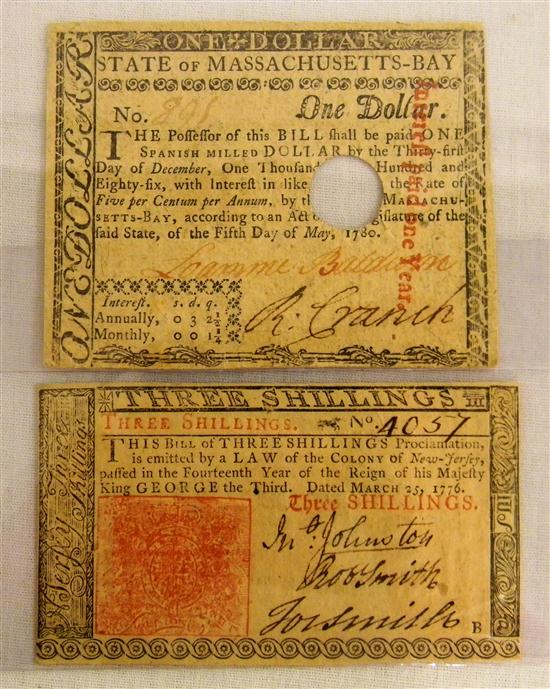 ONE DOLLAR
STATE OF MASSACHUSETTS-BAY
ONE DOLLAR
No. 898 One Dollar.
THE Poſſeſſor of this BILL ſhall be paid ONE
SPANISH MILLED DOLLAR by the Thirty-firſt
Day of December, One Thouſand Hundred and
Eighty-ſix, with Intereſt in like the Rate of
Five per Centum per Annum, by MASSACHU-
SETTS-BAY, according to an Act of the
ſaid State, of the Fifth Day of May, 1780.
Intereſt paid one Year.
R: Cranch
Intereſt. s. d. q.
Annually, 0 3 2 1/2
Monthly, 0 0 1 1/4
THREE SHILLINGS III
THREE SHILLINGS. No. 4057
THIS BILL of THREE SHILLINGS Proclamation,
is emitted by a LAW of the COLONY of New-Jerſey,
paſſed in the Fourteenth Year of the Reign of his Majeſty
King GEORGE the Third. Dated MARCH 25, 1776.
Three SHILLINGS.
N. Jerſey Three
Shillings
Jno. Johnston
Rob Smith
Jos Smith
B